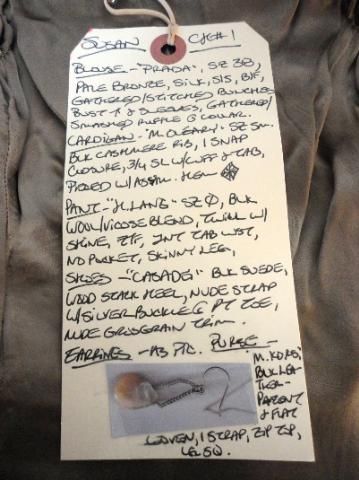 SUSAN CH#1
BLOUSE - "PRADA", SZ 38,
PALE BRONZE, SILK, S/S, B/F,
GATHERED/STITCHED BUNCHES
BUST & SLEEVES, GATHERED/
SMASHED RUFFLE @ COLLAR.
CARDIGAN - "M. O'LEARY" SZ SM.
BLK CASHMERE RIB, 1 SNAP
CLOSURE, 3/4 SL W/CUFF & TAB,
W/ASSYM. HEM
PANT - "H. LANG" SZ 0, BLK
WOOL/VISCOSE BLEND, TWILL W/
SHINE, F/F, INT TAB WST,
NO POCKET, SKINNY LEG,
SHOES - "CASADEI" BLK SUEDE,
WOOD STACK HEEL, NUDE STRAP
W/SILVER BUCKLE @ PT TOE,
NUDE GROSGRAIN TRIM.
EARRINGS - AS PIC. PURSE -
"M. KORS",
BLK LEA-
THER -
PATENT
& FLAT
WOVEN, 1 STRAP, ZIP TOP,
LG SQ.